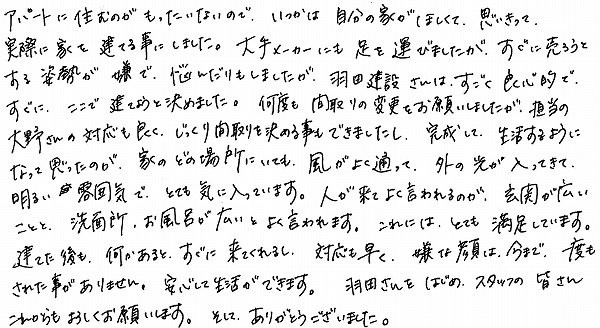 アパートに住むのがもったいないので、いつかは自分の家がほしくて、思いきって、
実際に家を建てる事にしました。大手メーカーにも足を運びましたが、すぐに売ろうと
する姿勢が嫌で、悩んだりもしましたが、羽田建設さんは、すごく良心的で、
すぐに、ここで建てようと決めました。何度も間取りの変更をお願いしましたが、担当の
大野さんの対応も良く、じっくり間取りを決める事もできましたし、完成して、生活するように
なって思ったのが、家のどの場所にいても、風がよく通って、外の光が入ってきて、
明るい雰囲気で、とても気に入っています。人が来てよく言われるのが、玄関が広い
ことと、洗面所、お風呂が広いとよく言われます。これには、とても満足しています。
建てた後も、何かあると、すぐに来てくれるし、対応も早く、嫌な顔は、今まで、一度も
された事がありません。安心して生活ができます。羽田さんをはじめ、スタッフの皆さん
これからもよろしくお願いします。そして、ありがとうございました。